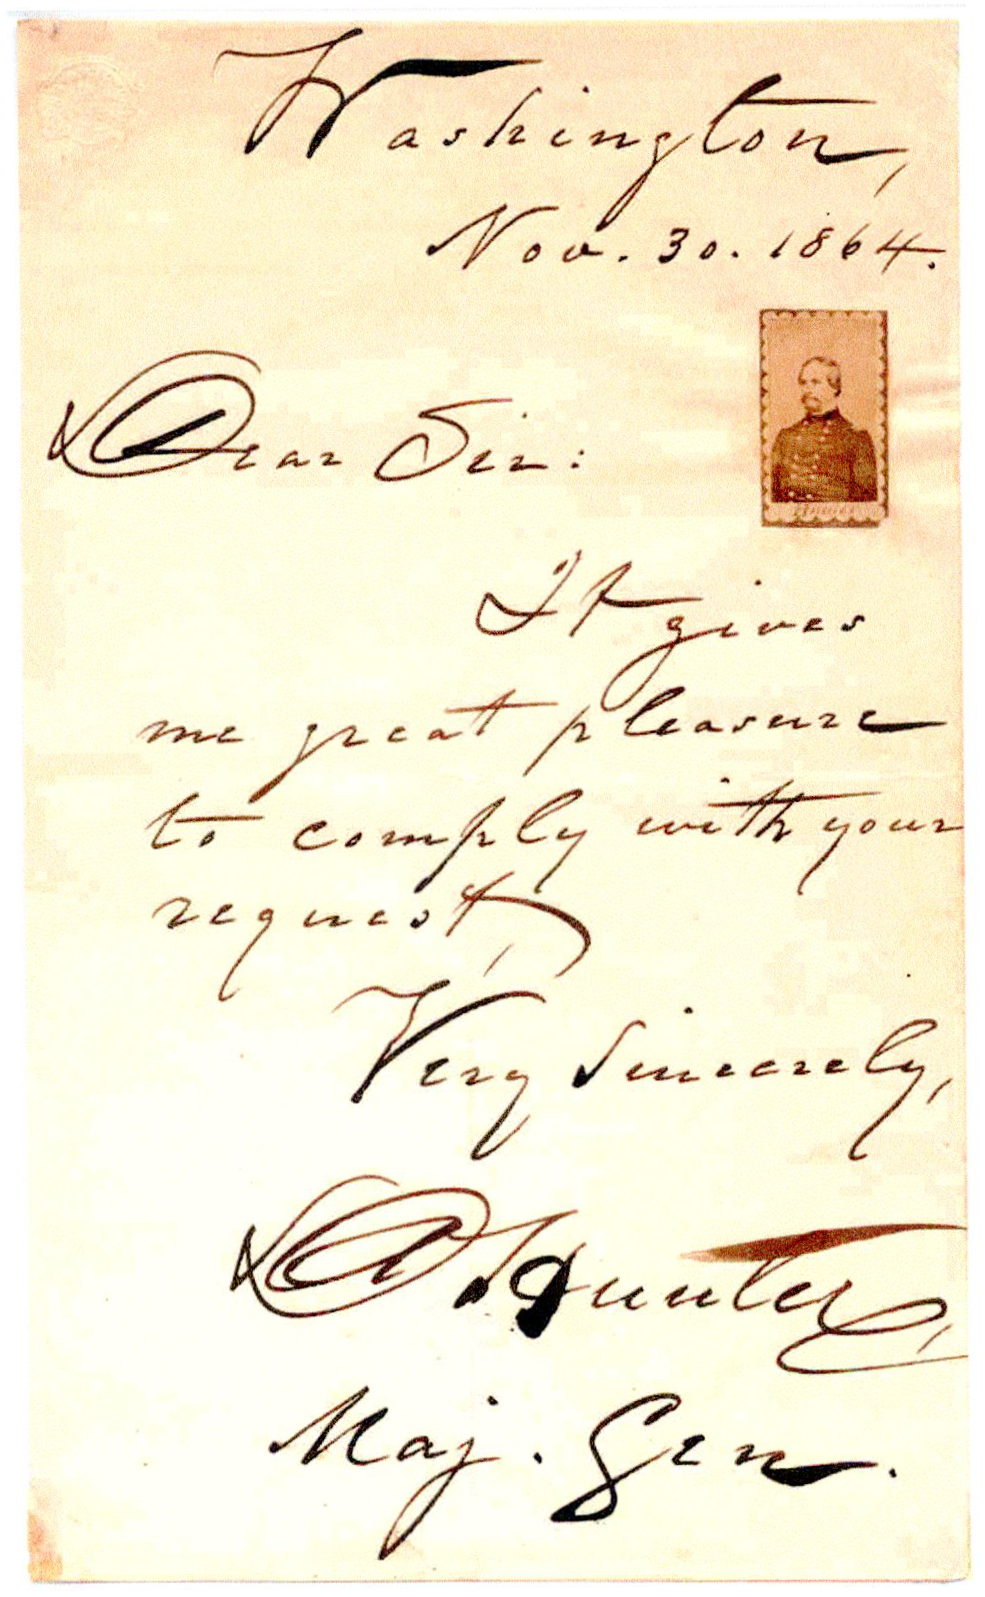 Washington,
Nov. 30. 1864.
Dear Sir:
It gives
me great pleasure
to comply with your
request,
Very Sincerely,
D. Hunter,
Maj. Gen.